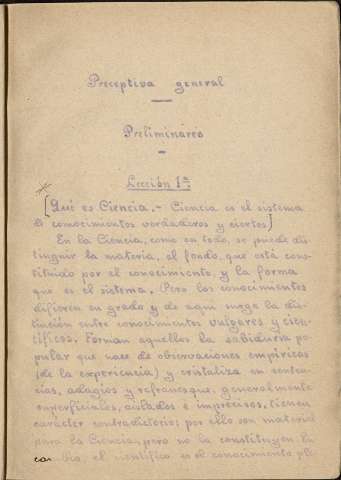 Preceptiva general
Preliminares
Lección 1ª
[Qué es Ciencia.- Ciencia es el sistema
de conocimientos verdaderos y ciertos]
En la Ciencia, como en todo, se puede dis-
tinguir la materia, el fondo, que está cons-
tituido por el conocimiento, y la forma
que es el sistema. Pero los conocimientos
difieren en grado y de aquí surge la dis-
tinción entre conocimientos vulgares y cien-
tíficos. Forman aquellos la sabiduría po
pular que nace de observaciones empíricas
(de la experiencia) y cristaliza en senten-
cias, adagios y refranes que, generalmente
superficiales, aislados e imprecisos, tienen
carácter contradictorio; por ello son material
para la Ciencia, pero no la constituyen. En
cambio, el científico es el conocimiento ple